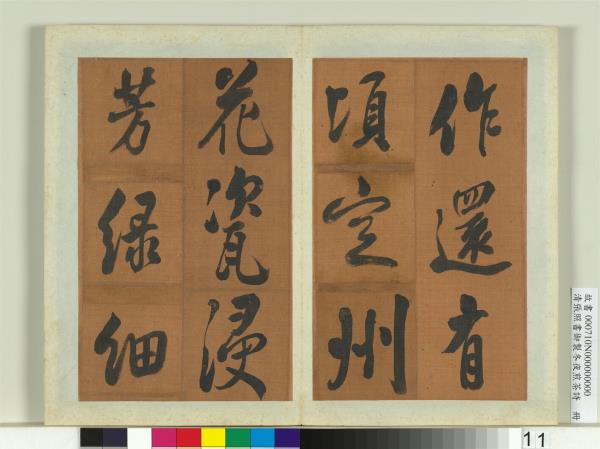 作還有
頃定州
花瓷浸
芳緑細
故書000710N000000000
清張照書御製冬夜煎茶詩 冊
11